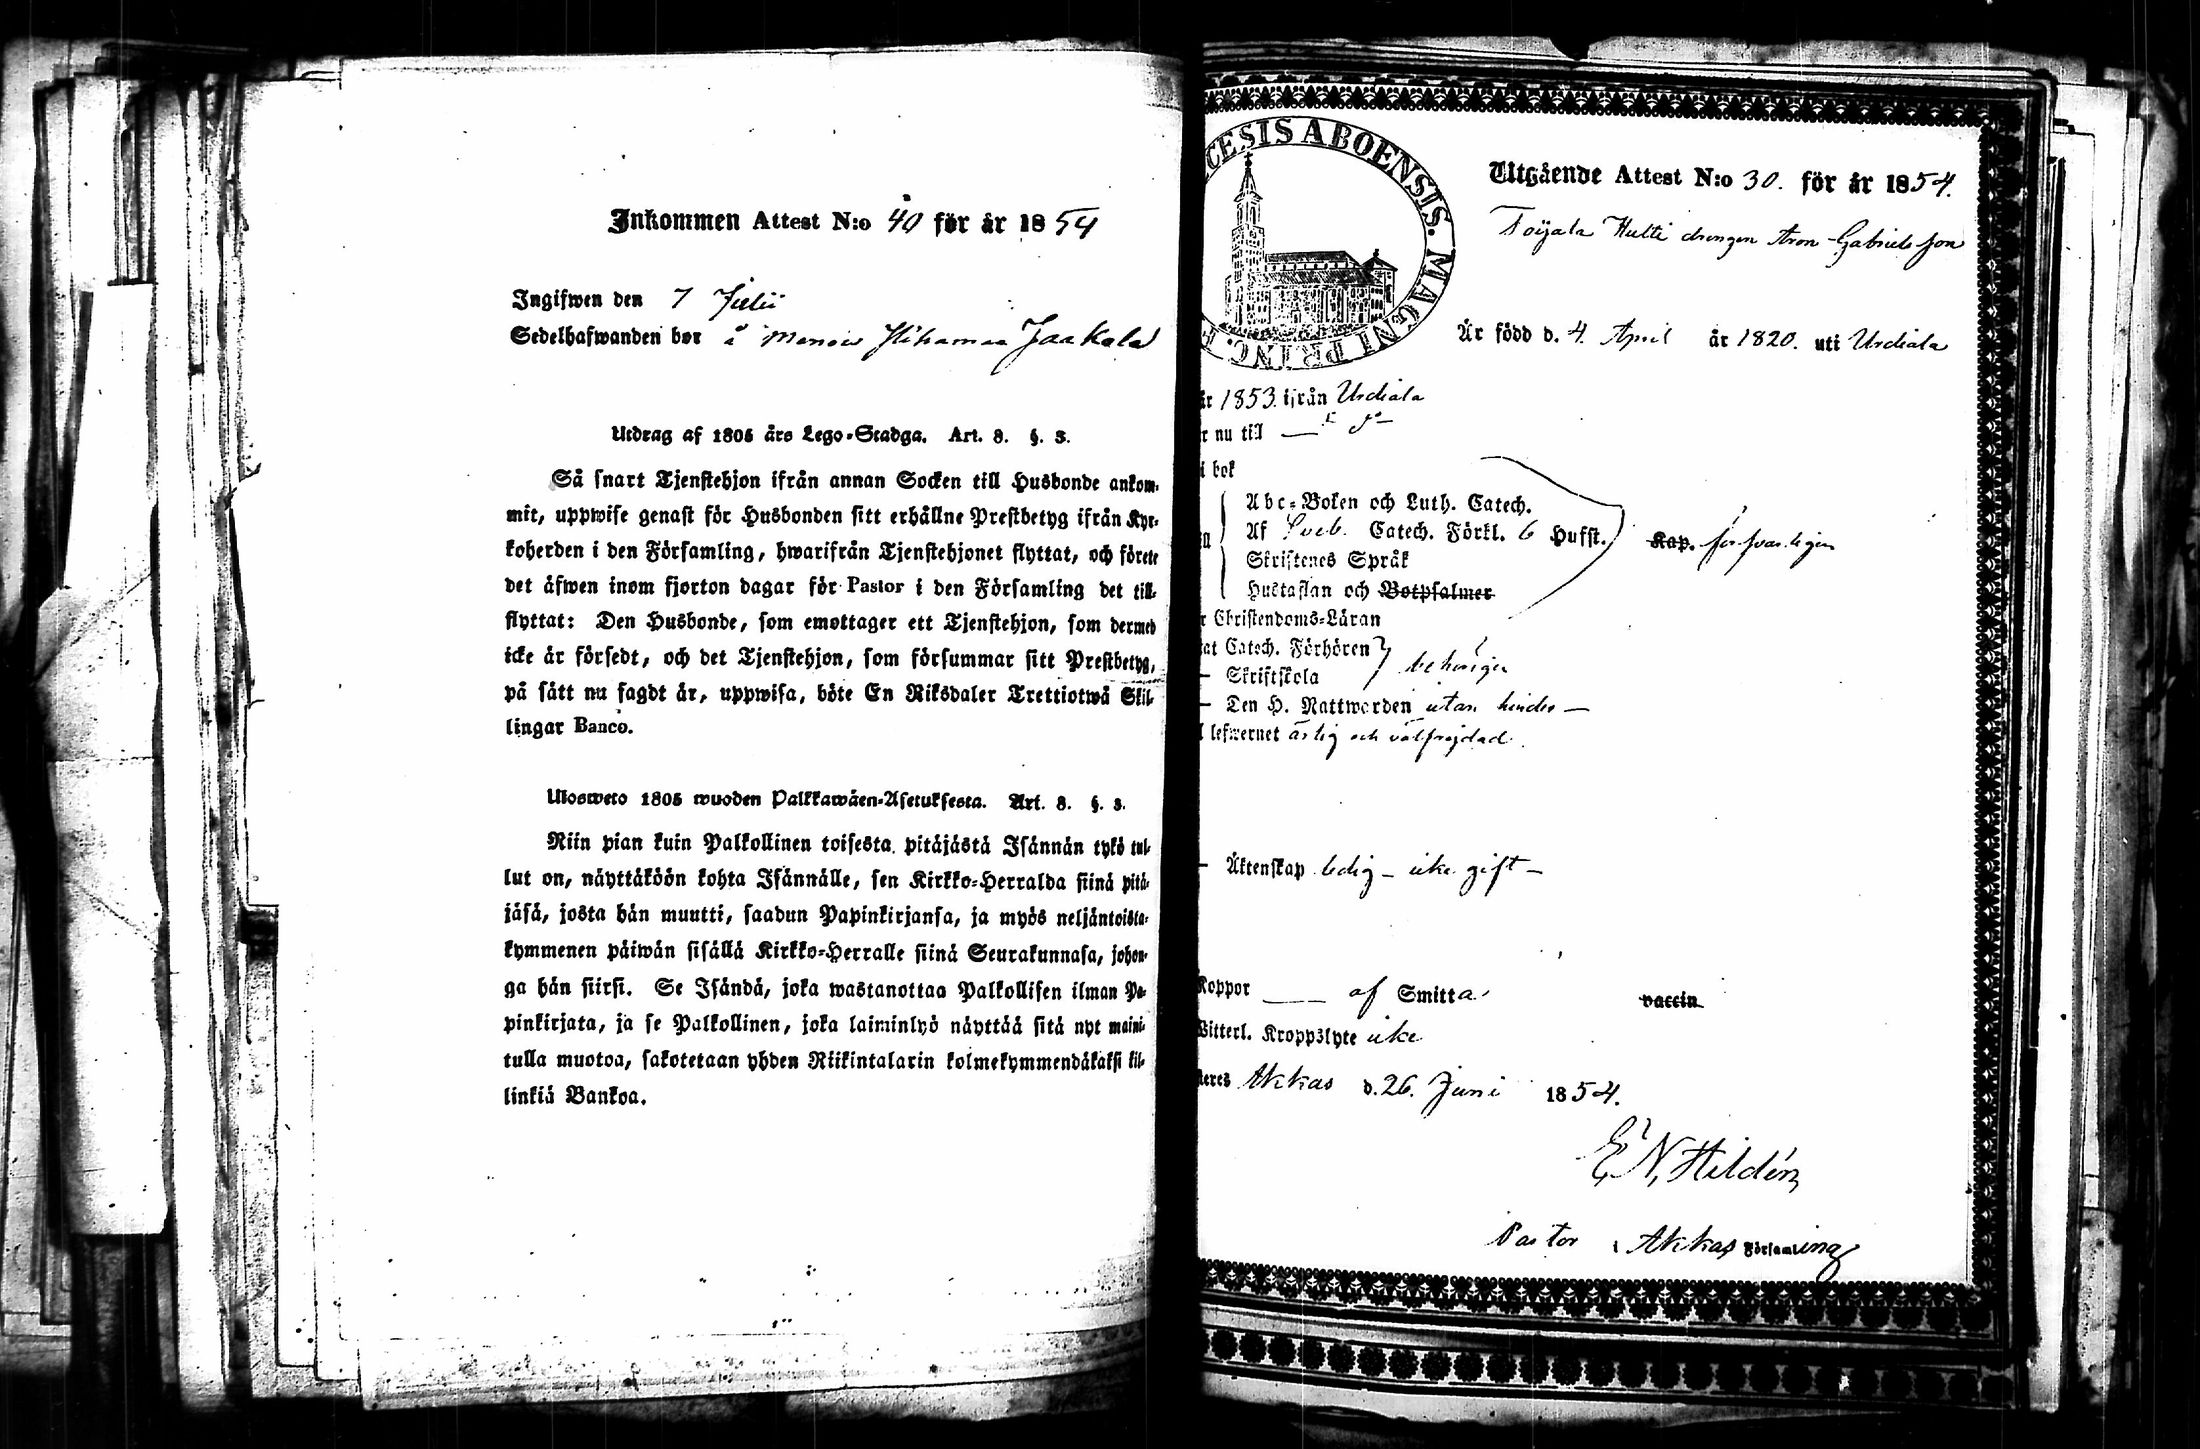 Inkommen Attest N:o 40 för år 1854
Ingifwen den 7 Julii
Sedelhafwanden bor å Jaakala
Utdrag af 1805 års Lego-Stadga. Art. 8. §. 3.
Så snart Tjenstehjon ifrån annan Socken till Husbonde ankom-
mit, uppwise genast för Husbonden sitt erhållne Prestbetyg ifrån Kyr-
koherden i den Församling, hwarifrån Tjenstehjonet flyttat, och förete
det äfwen inom fjorton dagar för Pastor i den Församling det till-
flyttat: Den Husbonde, som emottager ett Tjenstehjon, som dermed
icke är försedt, och det Tjenstehjon, som försummar sitt Prestbetyg,
på sätt nu sagdt är, uppwisa, böte En Riksdaler Trettiotwå Skil-
lingar Banco.
Ulosweto 1805 wuoden Palkkawäen-Asetuksesta. Art. 8. §. 3.
Niin pian kuin Palkollinen toisesta pitäjästä Isännän tykö tul-
lut on, näyttäköön kohta Isännälle, sen Kirkko-Herralda siinä pitä-
jäsä, josta hän muutti, saadun Papinkirjansa, ja myös neljäntoista-
kymmenen päiwän sisällä Kirkko-Herralle siinä Seurakunnasa, johon-
ga hän siirsi. Se Isändä, joka wastanottaa Palkollisen ilman Pa-
pinkirjata, ja se Palkollinen, joka laiminlyö näyttää sitä nyt maini-
tulla muotoa, sakotetaan yhden Riikintalarin kolmekymmendäkaksi kil-
linkiä Bankoa.
CESIS ABOENSIS. MAGNI PRINC. F
Utgående Attest N:o 30. för år 1854.
Toijala Hutti drengen Aron Gabrielsson
Är född d. 4. April år 1820. uti Urdiala
år 1853. ifrån Urdiala
r nu till
i bok
Abc-Boken och Luth. Catech.
Af Sveb. Catech. Förkl. 6 Hufst. Kap. försvarligen
Skriftenes Språk
Hustaflan och Botpsalmer
r Christendoms-Läran
at Catech. Förhören
— Skriftskola behörigen
— Den H. Nattwarden utan hinder —
l lefwernet ärlig och välfrejdad.
— Äktenskap ledig — icke gift —
Koppor —— af Smitta vaccin
Witterl. Kroppslyte icke
teres Akkas d. 26. Juni 1854.
E. N. Hildén
Pastor i Akkas Församling